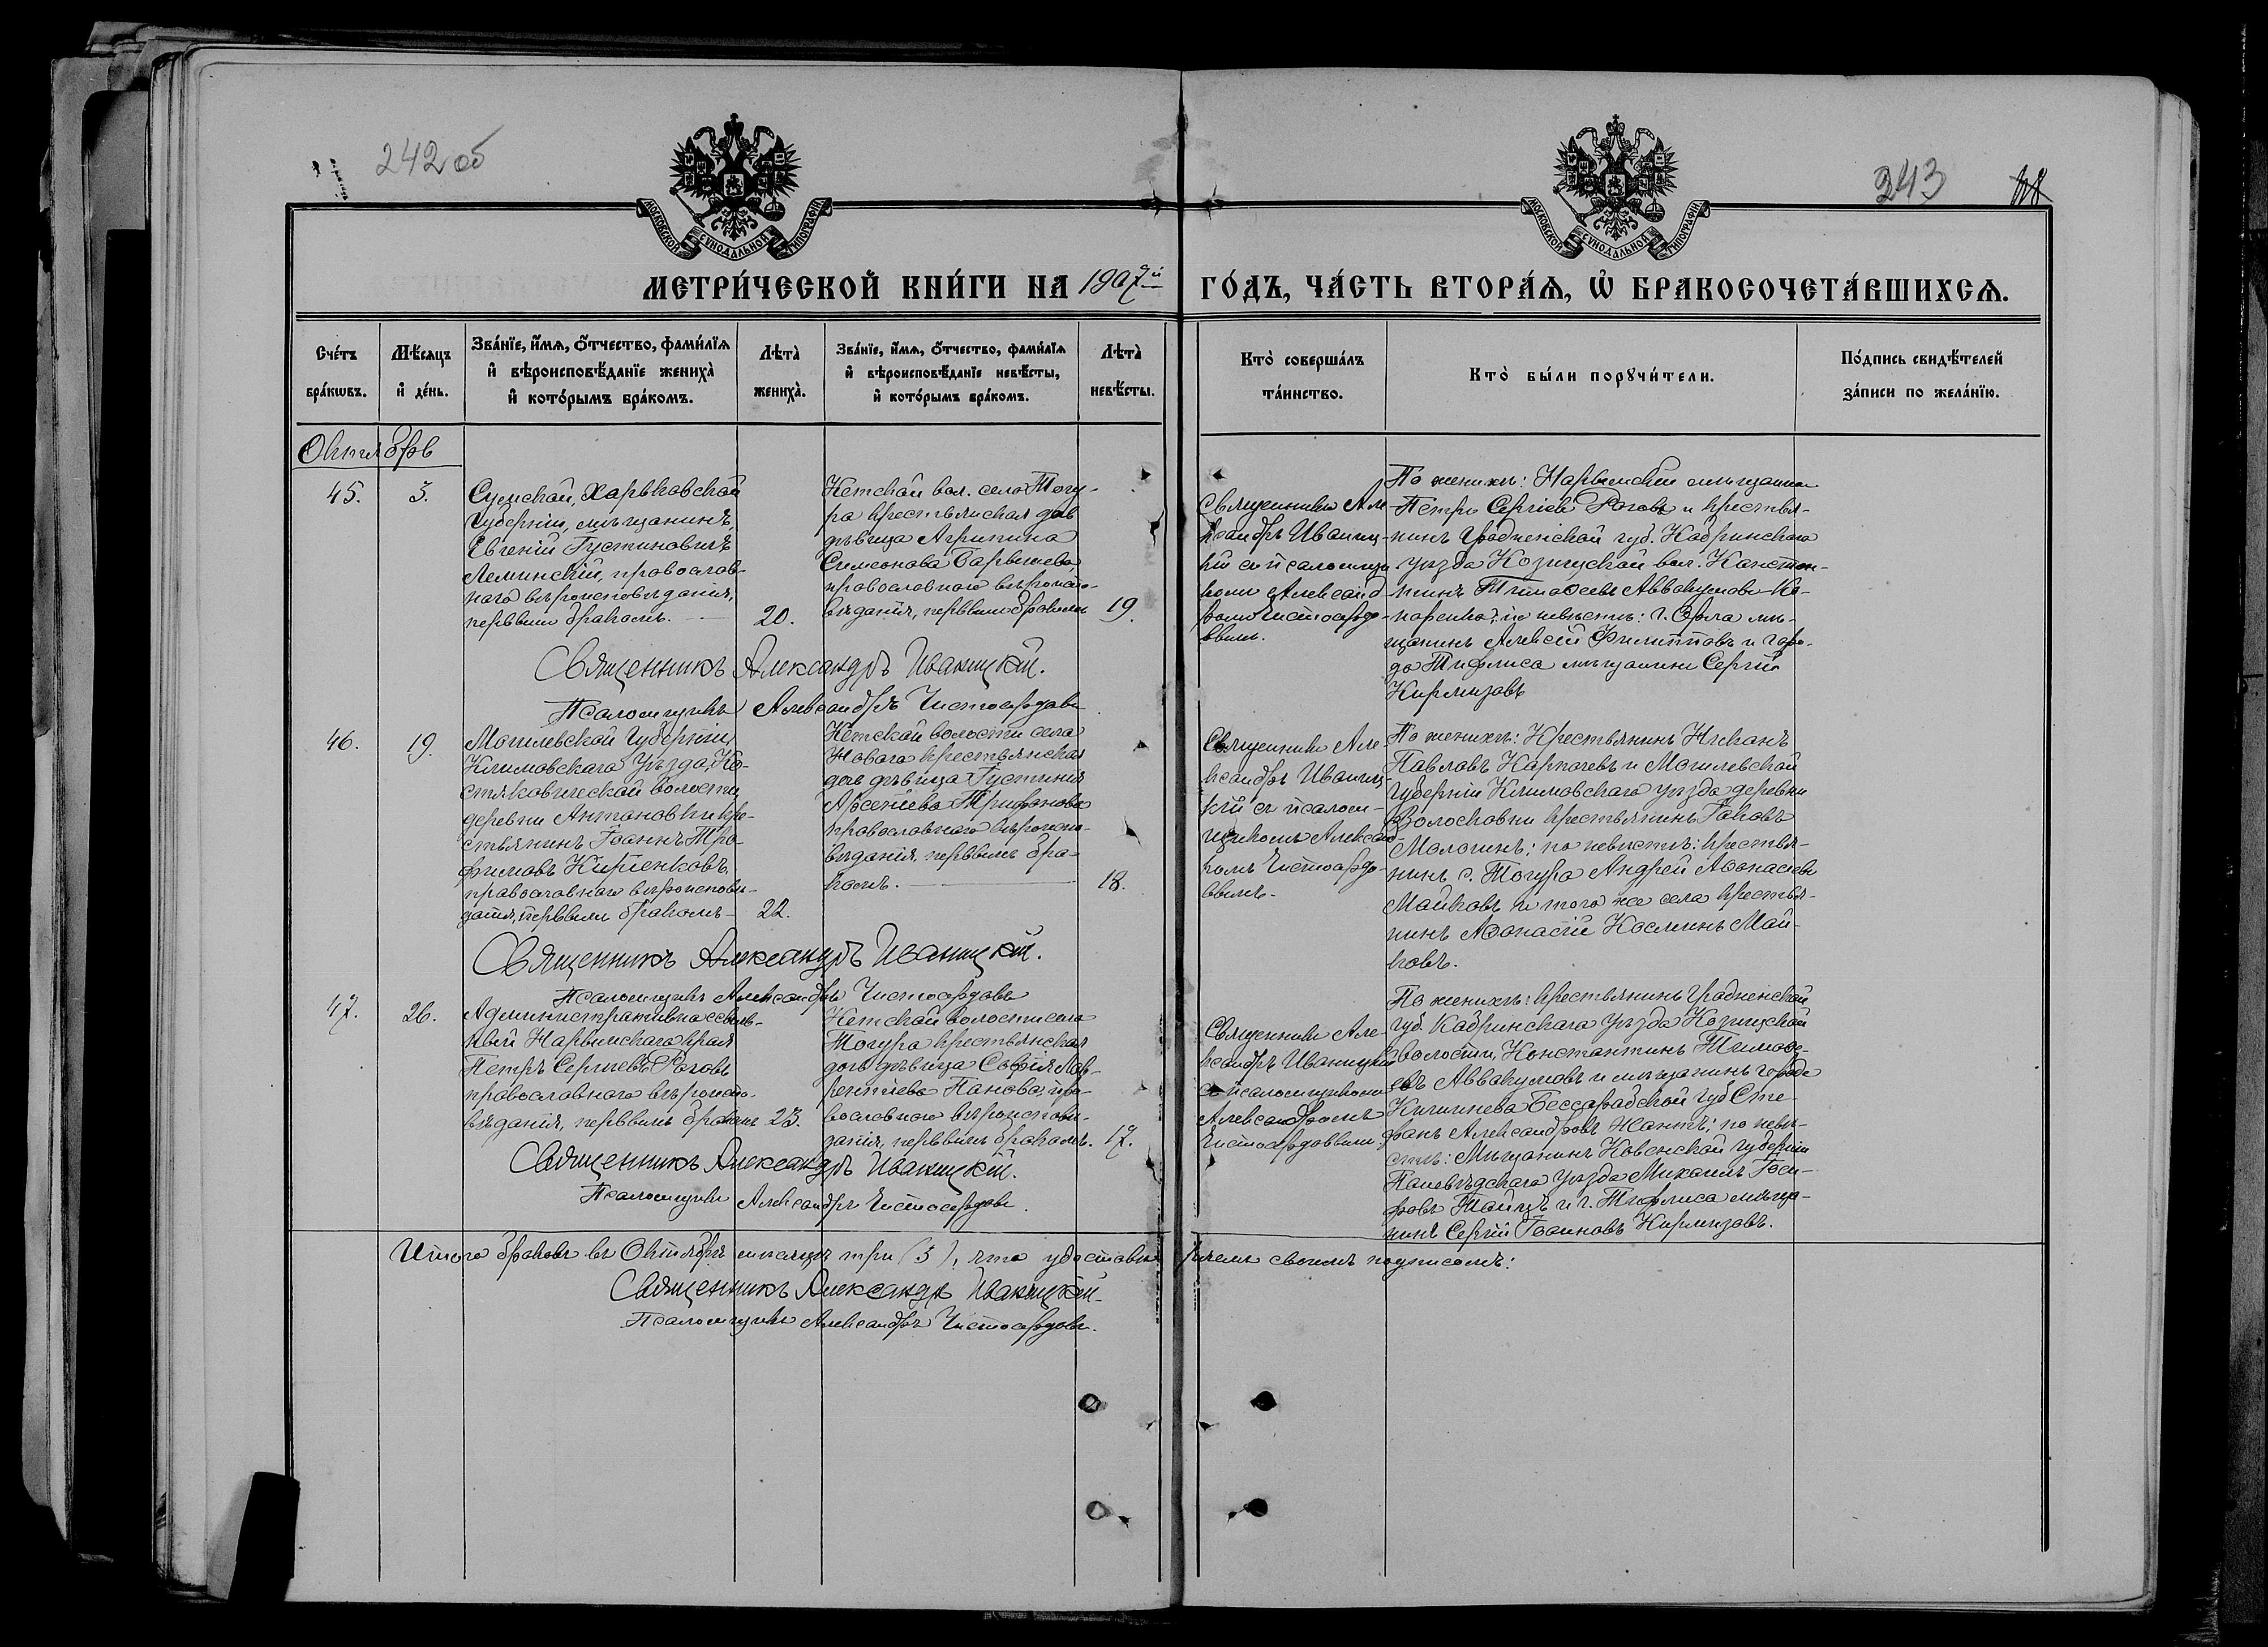 242 об
243
МОСКОВСКОЙ СѴНОДАЛЬНОЙ ТИПОГРАФІИ
МОСКОВСКОЙ СѴНОДАЛЬНОЙ ТИПОГРАФІИ
МЕТРИ́ЧЕСКОЙ КНИ́ГИ НА 1907й ГО́ДЪ, ЧА́СТЬ ВТОРА́Ѧ, Ѡ҆ БРАКОСОЧЕТА́ВШИХСѦ.
Сче́тъ бра́кωвъ.
Мѣ́сяцъ и҆ де́нь.
Зва́нїе, и҆́мѧ, ѻ҆́тчество, фами́лїѧ
и҆ вѣроисповѣ́данїе жениха̀
и҆ кото́рымъ бра́комъ.
Лѣта̀ жениха̀.
Зва́нїе, и҆́мѧ, ѻ҆́тчество, фами́лїѧ
и҆ вѣроисповѣ́данїе невѣ́сты,
и҆ кото́рымъ бра́комъ.
Лѣта̀ невѣ́сты.
Кто̀ соверша́лъ
та́инство.
Кто̀ бы́ли порꙋчи́тели.
По́дпись свидѣ́телей
за́писи по жела́нїю.
Октябрь
45.
3.
Сумской, Харьковской
Губерніи, мѣщанинъ,
Евгеній Густиновичъ
Леминскій, православ-
наго вѣроисповѣданія,
первымъ бракомъ.
20.
Кетской вол. села Тогу-
ра крестьянская дочь
дѣвица Агрипина
Симеонова Барышева,
православнаго вѣроиспо-
вѣданія, первымъ бракомъ
19.
Священникъ Але-
ксандръ Иваниц-
кій съ псаломщи-
комъ Александ-
ромъ Чистосердо-
вымъ.
По женихѣ: Нарымскій мѣщанинъ
Петръ Сергіевъ Роговъ и крестья-
нинъ Гродненской губ. Кобринскаго
уѣзда Козищской вол. Констан-
тинъ Тимоѳеевъ Аввакумовъ
по невѣстѣ: г. Орла мѣ-
щанинъ Алексій Филипповъ и горо-
да Тифлиса мѣщанинъ Сергій
Кирмизовъ
Священникъ Александръ Иваницкій.
Псаломщикъ Александръ Чистосердовъ
46.
19.
Могилевской Губерніи
Климовскаго Уѣзда, Ко-
стюковической волости
деревни Антоновки кре-
стьянинъ Іоаннъ Тро-
фимовъ Кириенковъ,
православнаго вѣроисповѣ-
данія, первымъ бракомъ
22.
Кетской волости села
Новаго крестьянская
дочь дѣвица Густинія
Авсентіева Трифонова
православнаго вѣроиспо-
вѣданія, первымъ бра-
комъ.
18.
Священникъ Але-
ксандръ Иваниц-
кій съ псалом-
щикомъ Александ-
ромъ Чистосердо-
вымъ.
По женихѣ: Крестьянинъ Никонъ
Павловъ Карпачевъ и Могилевской
Губерніи Климовскаго уѣзда деревни
Волосковни крестьянинъ Іаковъ
Молочинъ; по невѣстѣ: крестья-
нинъ с. Тогура Андрей Аѳанасіевъ
Майковъ и того же села крестья-
нинъ Аѳанасій Косминъ Май-
ковъ.
Священникъ Александръ Иваницкій.
Псаломщикъ Александръ Чистосердовъ
47.
26.
Административно ссыль-
ный Нарымскаго края
Петръ Сергіевъ Роговъ
православнаго вѣроиспо-
вѣданія, первымъ бракомъ
23.
Кетской волости села
Тогура крестьянская
дочь дѣвица Софія Лав-
рентіева Панова, пра-
вославнаго вѣроисповѣ-
данія, первымъ бракомъ.
17.
Священникъ Але-
ксандръ Иваницкій
съ псаломщикомъ
Александромъ
Чистосердовымъ.
По женихѣ: крестьянинъ Гродненской
губ. Кобринскаго уѣзда Козищской
волости, Константинъ Тимоѳе-
евъ Аввакумовъ и мѣщанинъ города
Кишинева Бессарабской губ Сте-
фанъ Александровъ Нантъ; по невѣ-
стѣ: Мѣщанинъ Ковенской губерніи
Паневѣдскаго уѣзда Михаилъ Іоси-
фовъ Тайцъ и г. Тифлиса мѣща-
нинъ Сергій Іоанновъ Кирмизовъ.
Священникъ Александръ Иваницкій.
Псаломщикъ Александръ Чистосердовъ.
Итого браковъ въ Октябрѣ мѣсяцѣ три (3), что удостовѣряемъ своимъ подписомъ:
Священникъ Александръ Иваницкій.
Псаломщикъ Александръ Чистосердовъ.